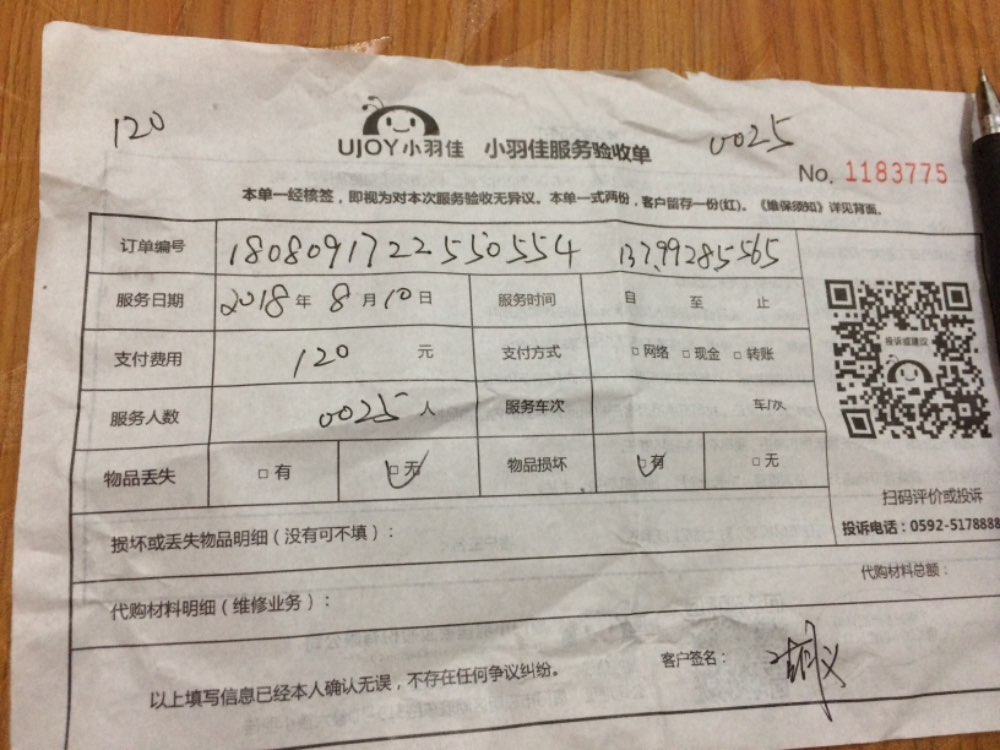 120
0025
UJOY小羽佳 小羽佳服务验收单
No. 1183775
本单一经核签，即视为对本次服务验收无异议。本单一式两份，客户留存一份(红)。《维保须知》详见背面。
订单编号 1808091722550554 13799285565
服务日期 2018年 8月10日 服务时间 自 至 止
支付费用 120 元 支付方式 □网络 □现金 □转账
投诉或建议
服务人数 0025人 服务车次 车/次
物品丢失 □有 □无 物品损坏 □有 □无
扫码评价或投诉
投诉电话：0592-5178888
损坏或丢失物品明细（没有可不填）：
代购材料总额：
代购材料明细（维修业务）：
客户签名：
以上填写信息已经本人确认无误，不存在任何争议纠纷。